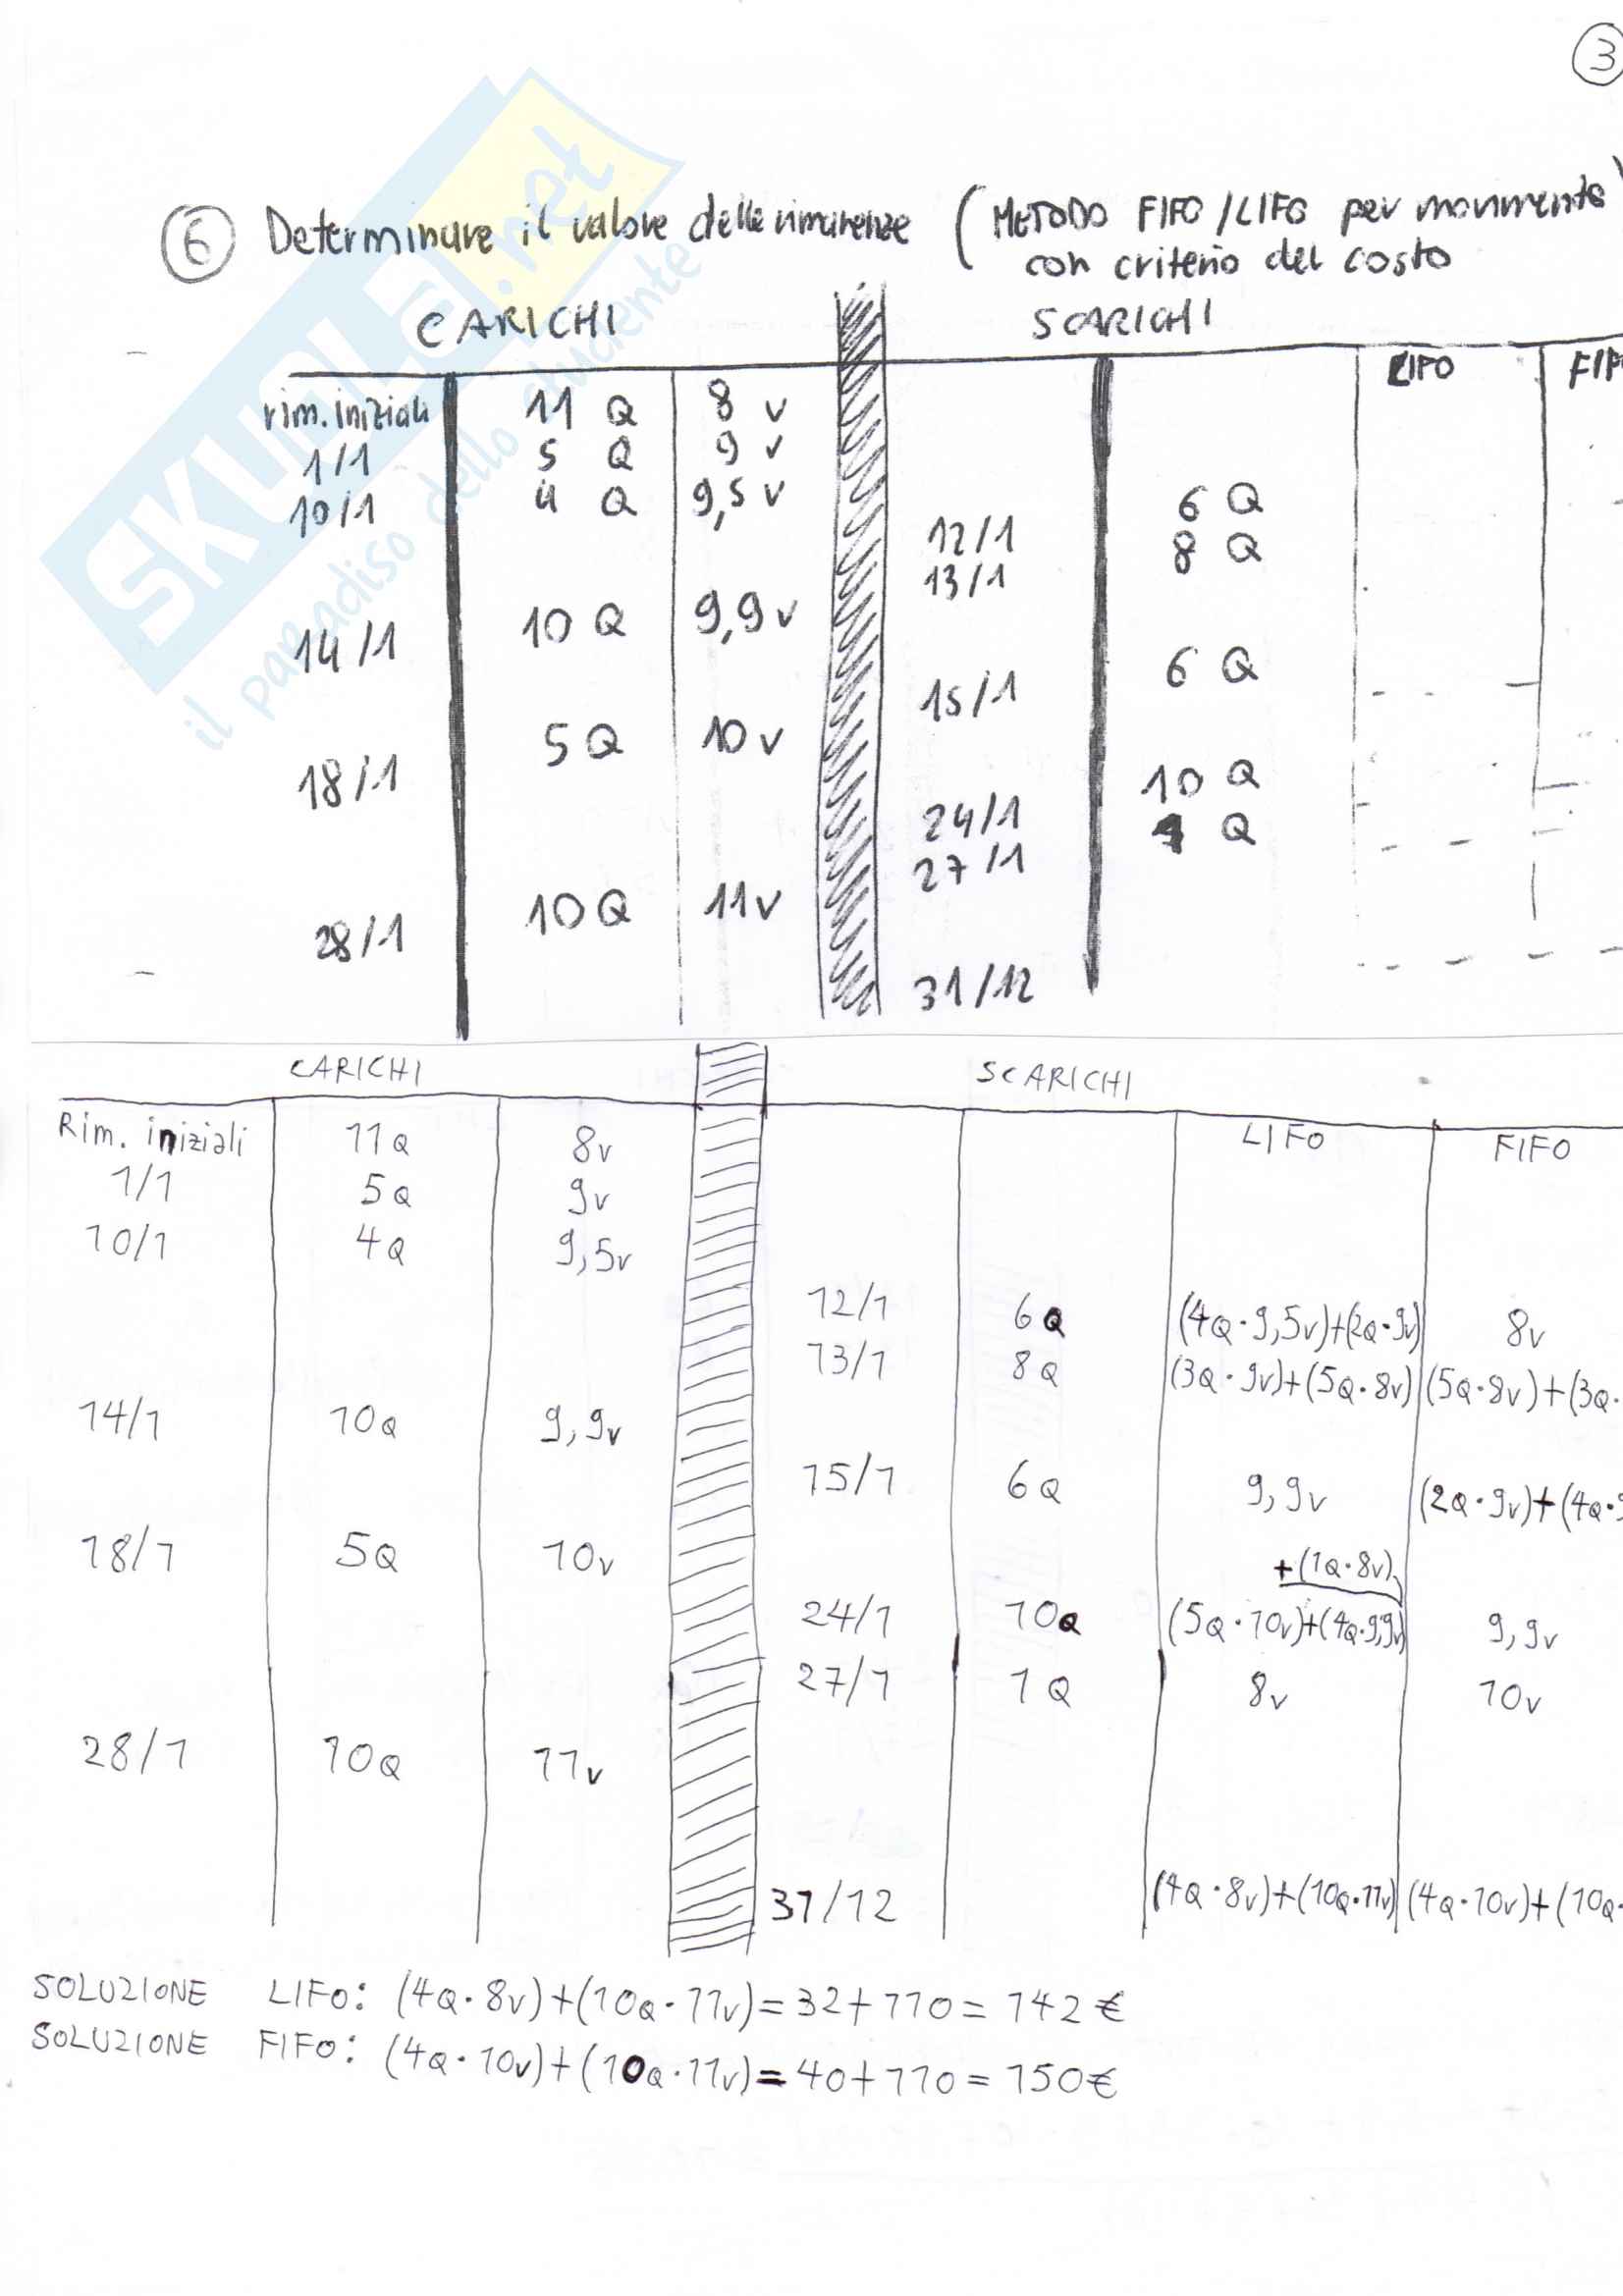 3
6 Determinare il valore delle rimanenze (METODO FIFO/LIFO per movimento)
con criterio del costo
CARICHI SCARICHI
LIFO FIF
rim. iniziali 11 Q 8 v
1/1 5 Q 9 v
10/1 4 Q 9,5 v
12/1 6 Q
13/1 8 Q
14/1 10 Q 9,9 v
15/1 6 Q
18/1 5 Q 10 v
24/1 10 Q
27/1 Q
28/1 10 Q 11 v
31/12
CARICHI SCARICHI
LIFO FIFO
Rim. iniziali 11Q 8v
1/1 5Q 9v
10/1 4Q 9,5v
12/1 6Q (4Q·9,5v)+(2Q·9v) 8v
13/1 8Q (3Q·9v)+(5Q·8v) (5Q·8v)+(3Q·
14/1 10Q 9,9v
15/1 6Q 9,9v (2Q·9v)+(4Q·9
18/1 5Q 10v
+(1Q·8v)
24/1 10Q (5Q·10v)+(4Q·9,9v) 9,9v
27/1 1Q 8v 10v
28/1 10Q 11v
31/12 (4Q·8v)+(10Q·11v) (4Q·10v)+(10Q·
SOLUZIONE LIFO: (4Q·8v)+(10Q·11v)=32+110=142€
SOLUZIONE FIFO: (4Q·10v)+(10Q·11v)=40+110=150€
SKUOLA.net
il paradiso dello studente